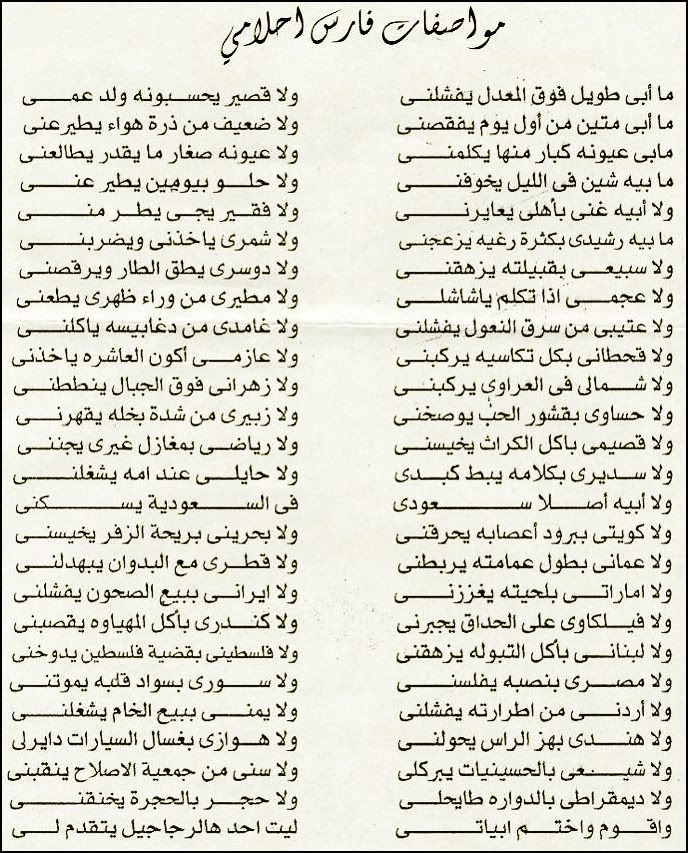 مواصفات فارس احلامي
ما أبى طويل فوق المعدل يفشلنى ولا قصير يحسبونه ولد عمى
ما أبى متين من أول يوم يفقصنى ولا ضعيف من ذرة هواء يطيرعنى
مابى عيونه كبار منها يكلمنى ولا عيونه صغار ما يقدر يطالعنى
ما بيه شين فى الليل يخوفنى ولا حلو بيومين يطير عنى
ولا أبيه غنى بأهلى يعايرنى ولا فقير يجى يطر منى
ما بيه رشيدى بكثرة رغيه يزعجنى ولا شمرى ياخذنى ويضربنى
ولا سبيعى بقبيلته يزهقنى ولا دوسرى يطق الطار ويرقصنى
ولا عجمى اذا تكلم ياشاشلى ولا مطيرى من وراء ظهرى يطعنى
ولا عتيبى من سرق النعول يفشلنى ولا غامدى من دغابيسه ياكلنى
ولا قحطانى بكل تكاسيه يركبنى ولا عازمى أكون العاشره ياخذنى
ولا شمالى فى العراوى يركبنى ولا زهرانى فوق الجبال ينططنى
ولا حساوى بقشور الحب يوصخنى ولا زبيرى من شدة بخله يقهرنى
ولا قصيمى باكل الكراث يخيسنى ولا رياضى بمغازل غيرى يجننى
ولا سديرى بكلامه يبط كبدى ولا حايلى عند امه يشغلنى
ولا أبيه أصلا سعودى فى السعودية يسكنى
ولا كويتى ببرود أعصابه يحرقنى ولا بحرينى بريحة الزفر يخيسنى
ولا عمانى بطول عمامته يربطنى ولا قطرى مع البدوان يبهدلنى
ولا اماراتى بلحيته يغززنى ولا ايرانى ببيع الصحون يفشلنى
ولا فيلكاوى على الحداق يجبرنى ولا كندرى بأكل المهياوه يقصبنى
ولا لبنانى بأكل التبوله يزهقنى ولا فلسطينى بقضية فلسطين يدوخنى
ولا مصرى بنصبه يفلسنى ولا سورى بسواد قلبه يموتنى
ولا أردنى من اطرارته يفشلنى ولا يمنى ببيع الخام يشغلنى
ولا هندى بهز الراس يحولنى ولا هوازى بغسال السيارات دايرلى
ولا شيعى بالحسينيات يبركلى ولا سنى من جمعية الاصلاح ينقبنى
ولا ديمقراطى بالدواره طايحلى ولا حجر بالحجرة يخنقنى
واقوم واختم ابياتى ليت احد هالرجاجيل يتقدم لى